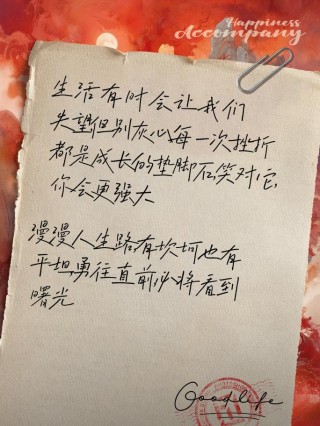 Happiness
Accompany
生活有时会让我们
失望但别灰心每一次挫折
都是成长的垫脚石笑对它
你会更强大
漫漫人生路有坎坷也有
平坦勇往直前必将看到
曙光
Goodlife